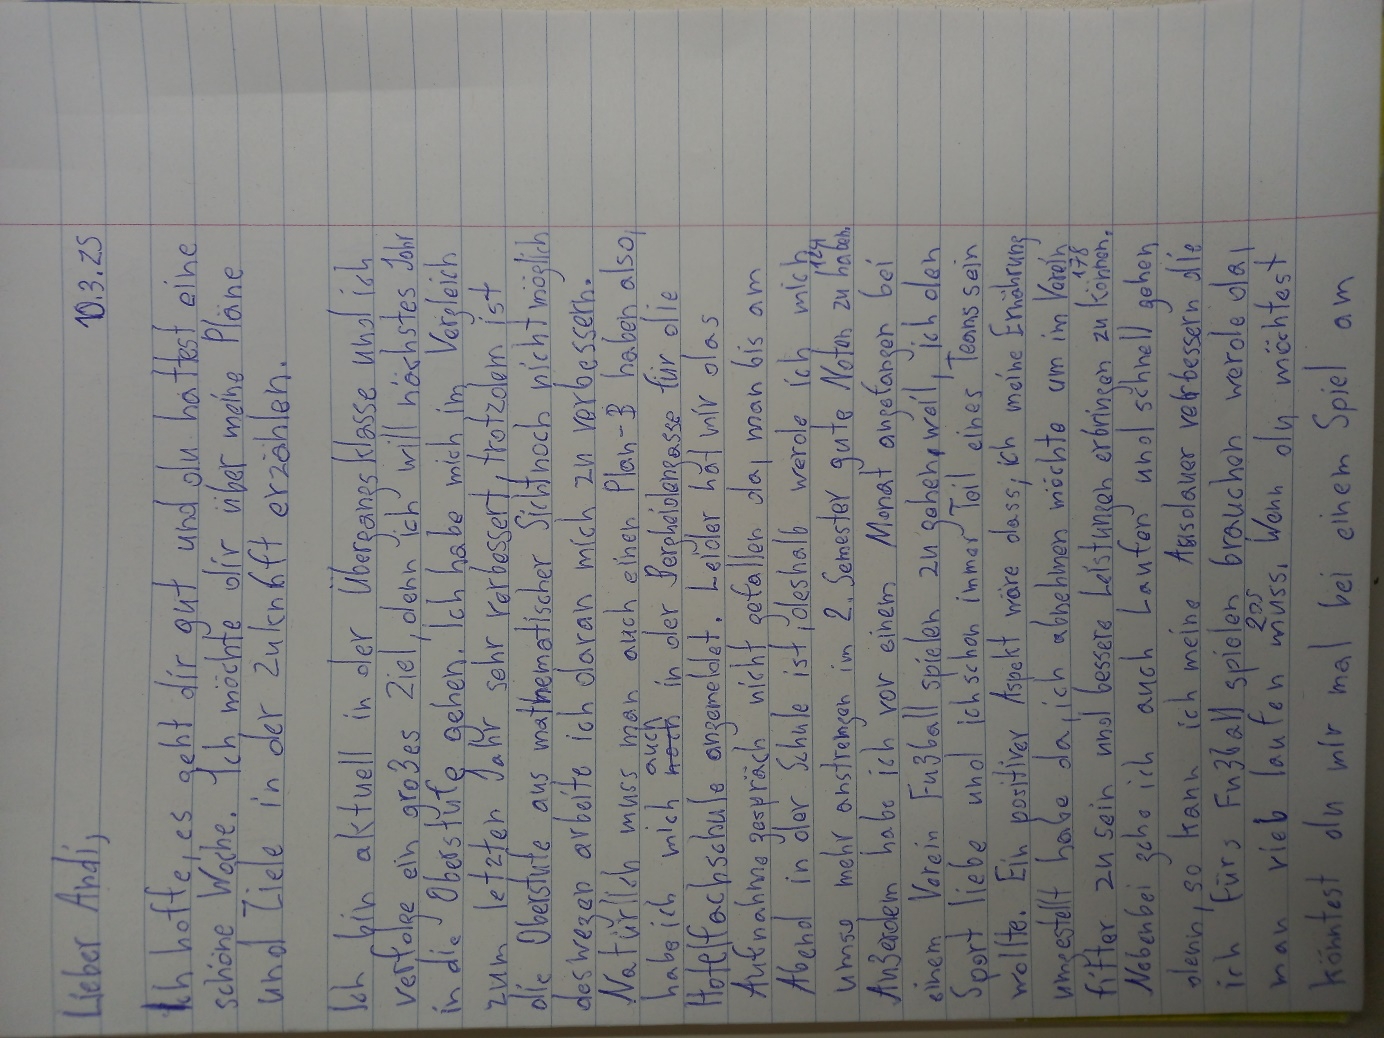 10.3.25
Lieber Andi,
Ich hoffe, es geht dir gut und du hattest eine
schöne Woche. Ich möchte dir über meine Pläne
und Ziele in der Zukunft erzählen.
Ich bin aktuell in der Übergangsklasse und ich
verfolge ein großes Ziel, denn ich will nächstes Jahr
in die Oberstufe gehen. Ich habe mich im Vergleich
zum letzten Jahr sehr verbessert, trotzdem ist
die Oberstufe aus mathematischer Sicht noch nicht möglich
deshwegen arbeite ich daran mich zu verbessern.
Natürlich muss man auch einen Plan-B haben also,
habe ich mich noch auch in der Bergheidengasse für die
Hotelfachschule angemeldet. Leider hat mir das
Aufnahmegespräch nicht gefallen da, man bis am
Abend in der Schule ist, deshalb werde ich mich
umso mehr anstrengen im 2. Semester gute Noten zu haben. 124
Außerdem habe ich vor einem Monat angefangen bei
einem Verein Fußball spielen zu gehen, weil, ich den
Sport liebe und ich schon immer Teil eines Teams sein
wollte. Ein positiver Aspekt wäre dass, ich meine Ernährung
umgestellt habe da, ich abnehmen möchte um im Verein
fitter zu sein und bessere Leistungen erbringen zu können. 178
Nebenbei gehe ich auch Laufen und schnell gehen,
denn, so kann ich meine Ausdauer verbessern die
ich fürs Fußball spielen brauchen werde da,
man vieb laufen muss. 205 Wenn du möchtest
könntest du mir mal bei einem Spiel am